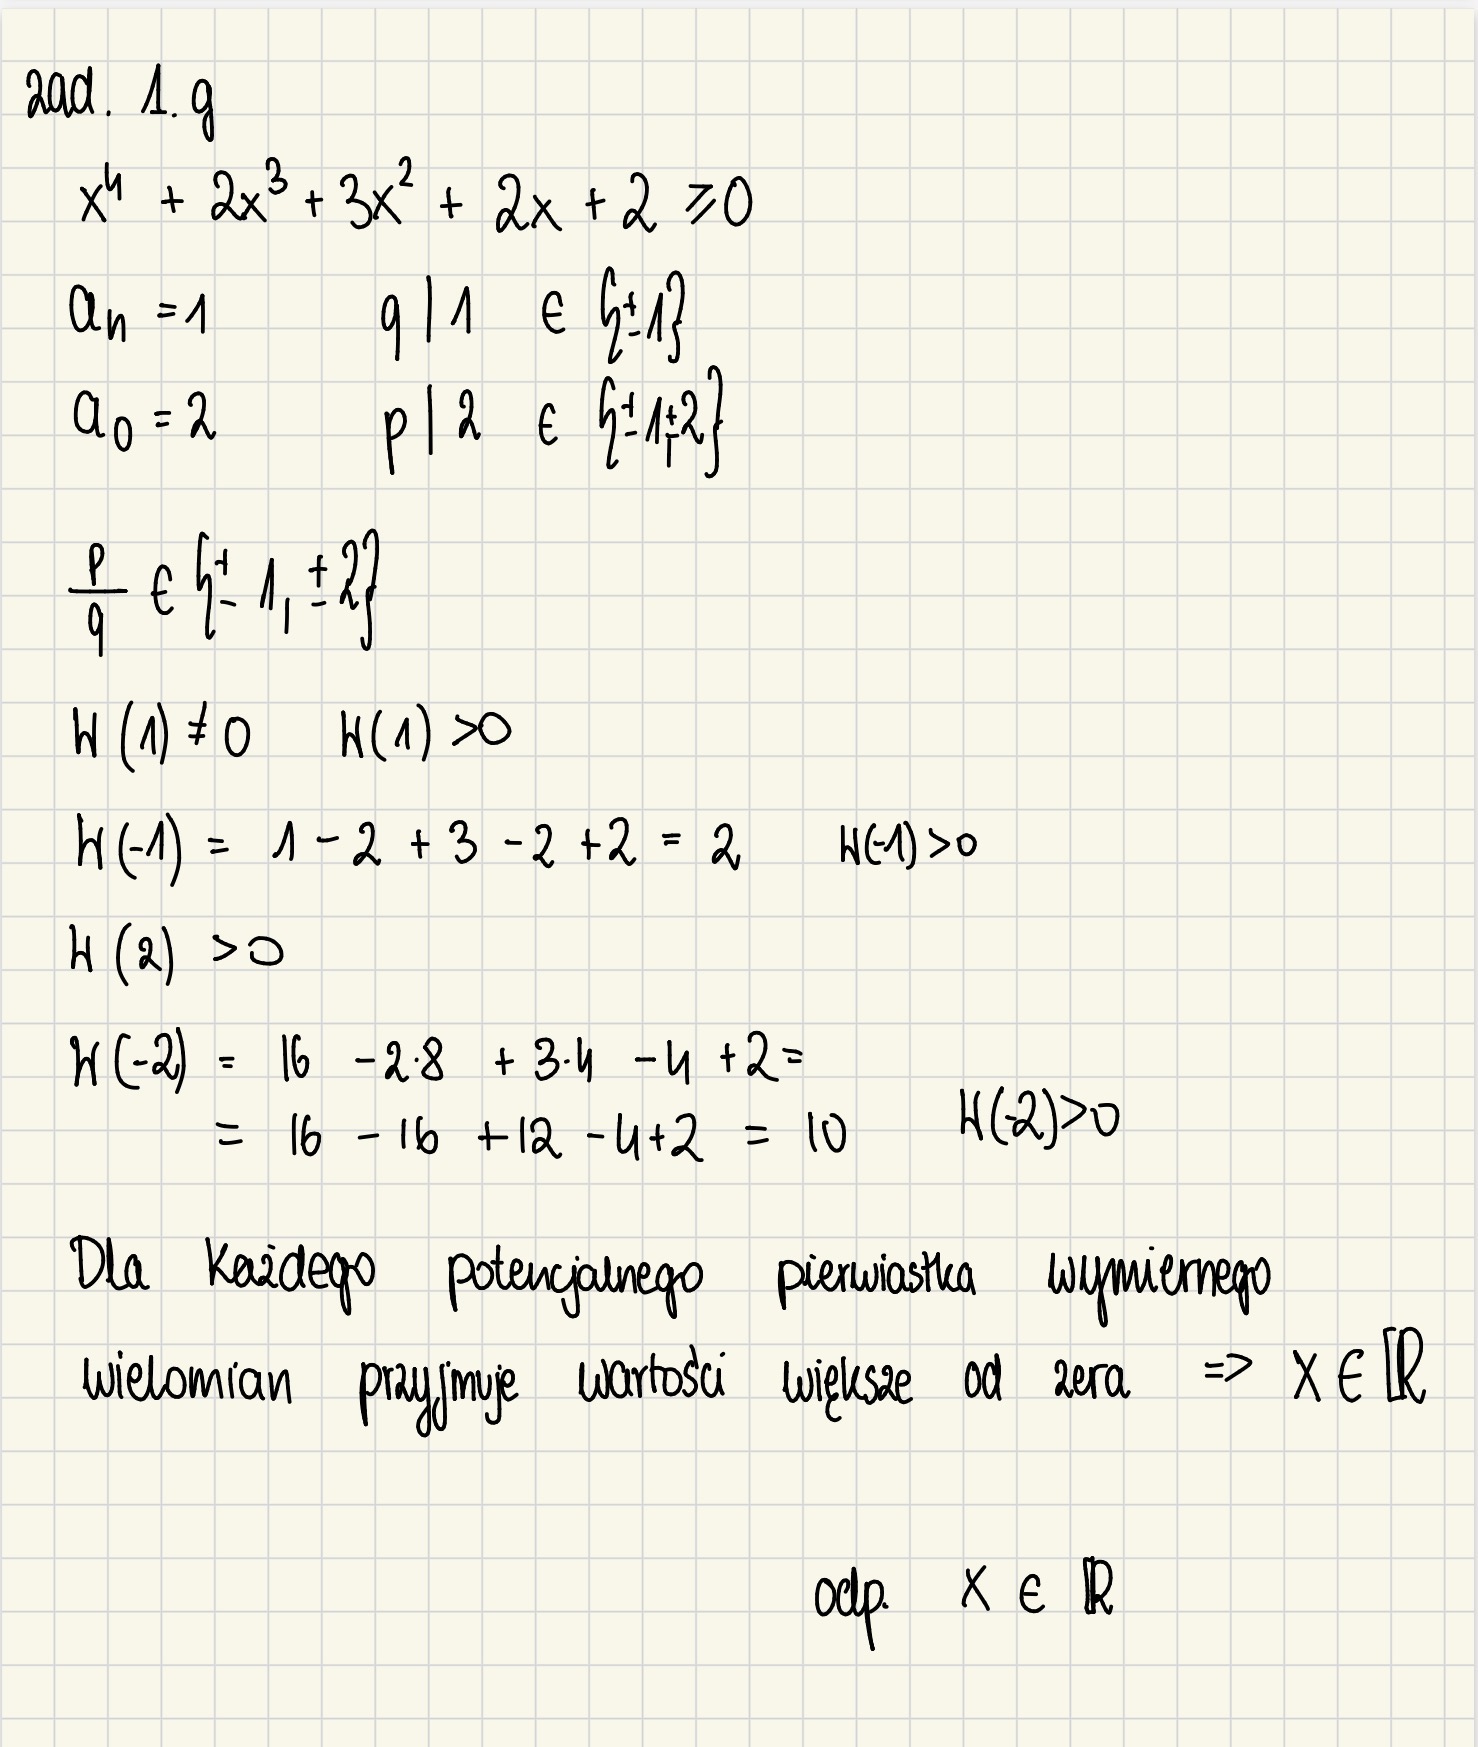 zad. 1. g
x⁴ + 2x³ + 3x² + 2x + 2 ⩾ 0
aₙ = 1 q | 1 ∈ {±1}
a₀ = 2 p | 2 ∈ {±1, ±2}
p/q ∈ {± 1, ± 2}
W(1) ≠ 0 W(1) > 0
W(-1) = 1 - 2 + 3 - 2 + 2 = 2 W(-1) > 0
W(2) > 0
W(-2) = 16 - 2·8 + 3·4 - 4 + 2 =
= 16 - 16 + 12 - 4 + 2 = 10 W(-2) > 0
Dla każdego potencjalnego pierwiastka wymiernego
wielomian przyjmuje wartości większe od zera => x ∈ ℝ
odp. x ∈ ℝ